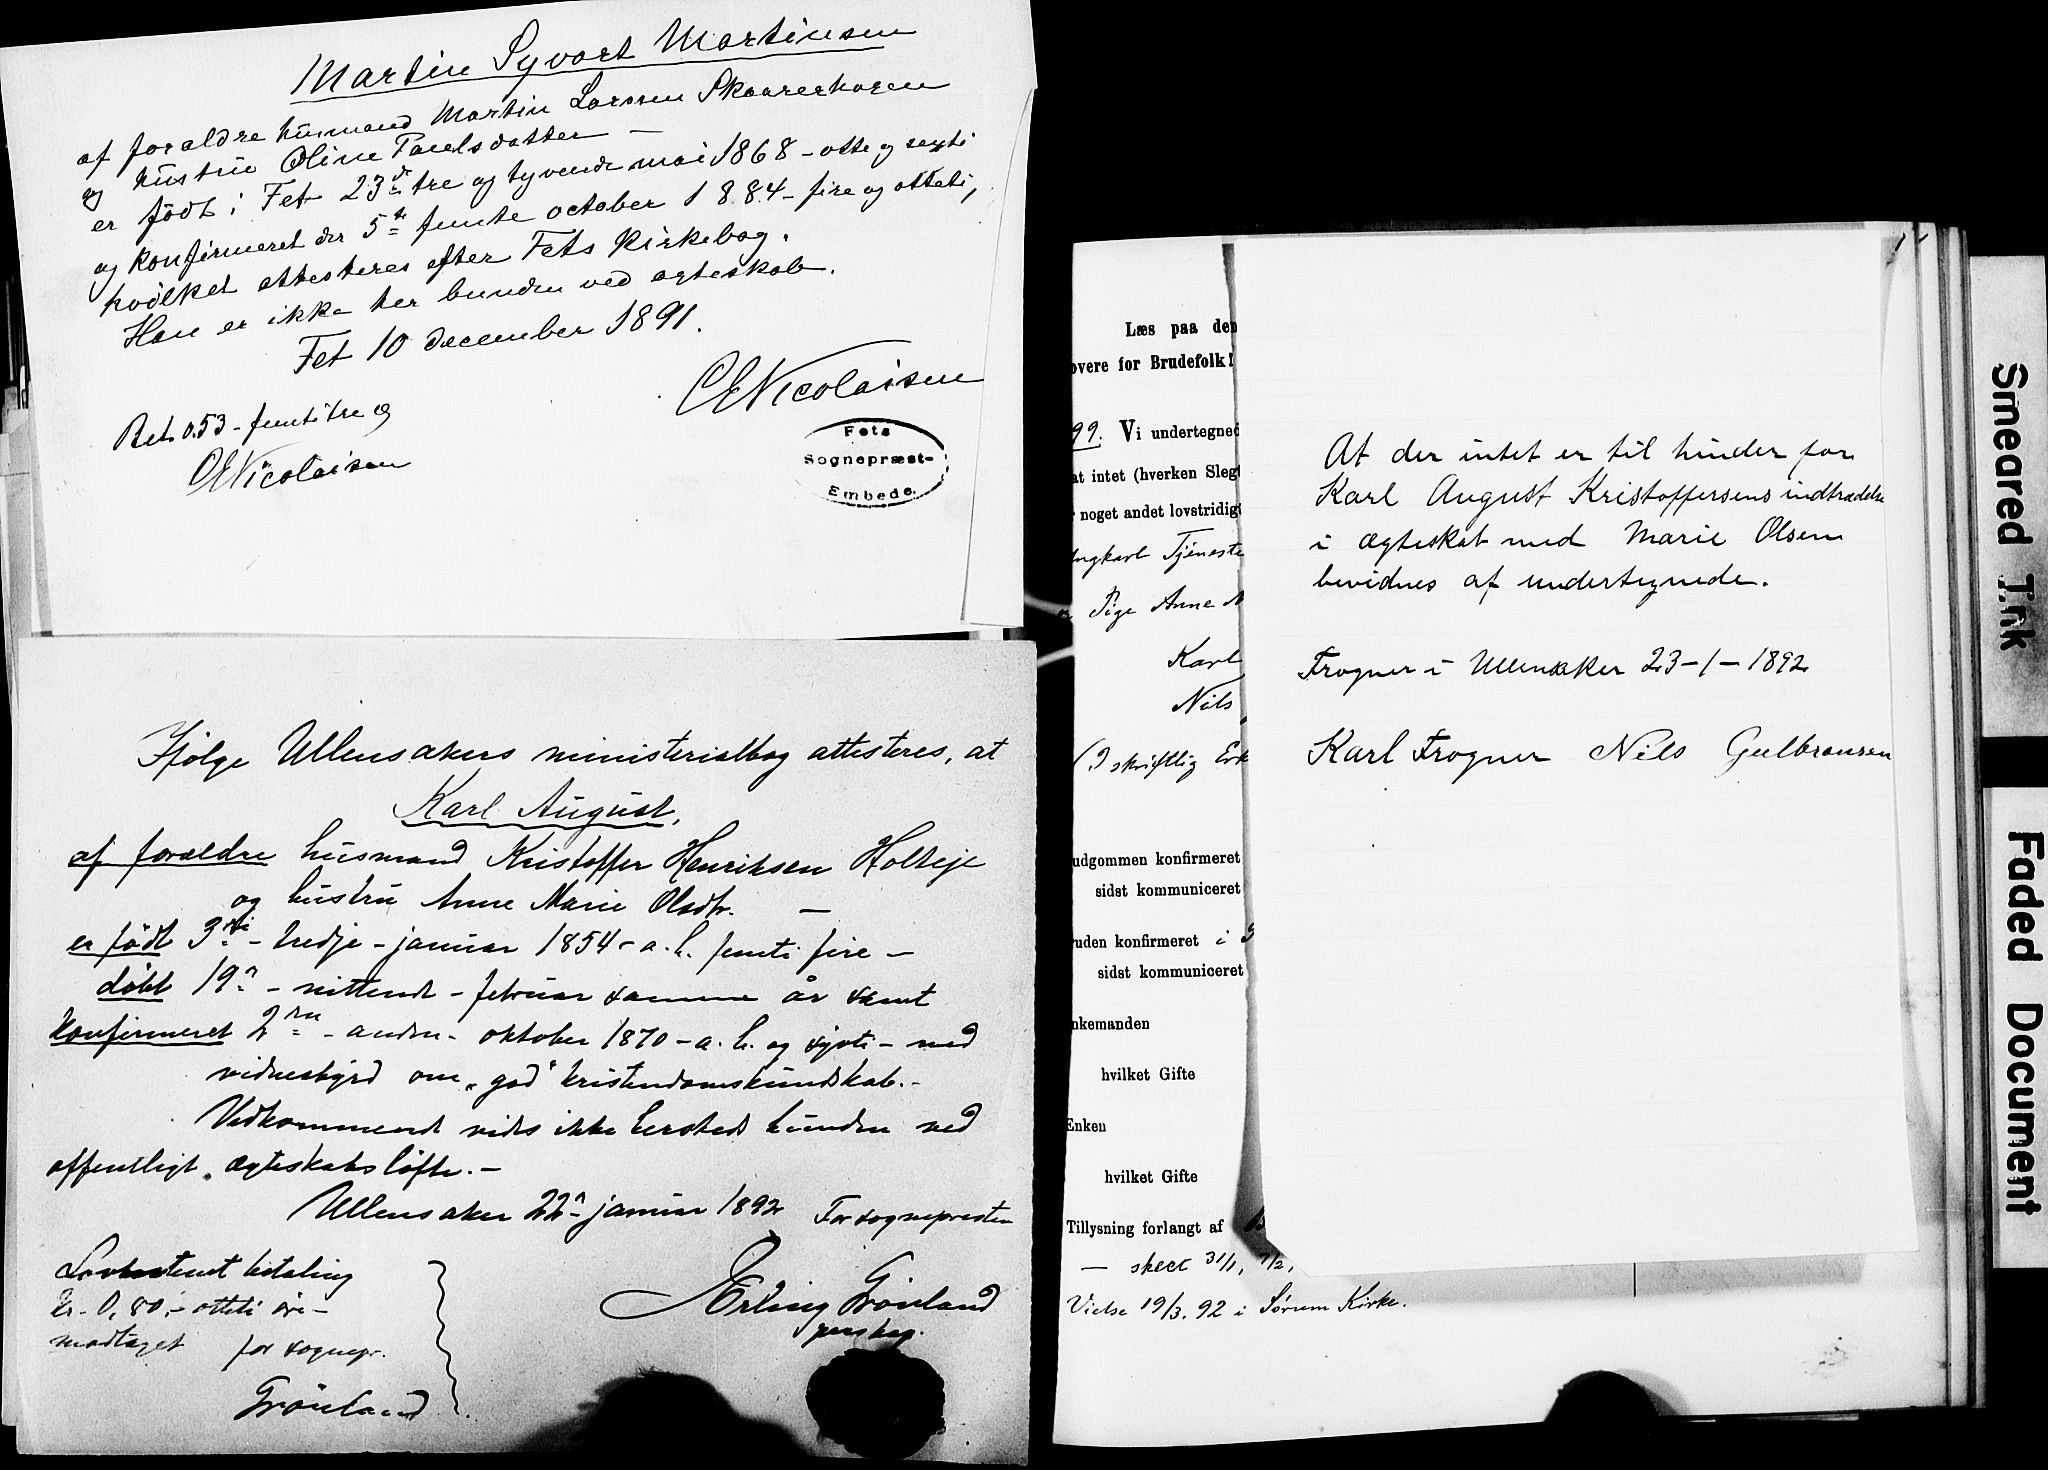 Martin Syvart Martinsen
af forældre husmand Martin Larsen Skaarerhagen
og hustru Oline Paulsdatter —
er født i Fet 23de tre og tyvende mai 1868 - otte og sexti
og konfirmeret den 5te femte october 1884 - fire og otteti,
hvilket attesteres efter Fets Kirkebog.
Han er ikke her bunden ved ægteskab.
Fet 10 december 1891.
CENicolaisen
Bet. 0.53 - femtitre ø
CENicolaisen
Fets
Sognepræst-
Embede.
Ifølge Ullensakers ministerialbog attesteres, at
Karl August,
af forældre husmand Kristoffer Henriksen Holteje
og hustru Anne Marie Olsdtr. —
er født 3die - tredje - januar 1854 - a. h. femti fire -
døbt 19n - nittende - februar samme år samt
konfirmeret 2den - anden - oktober 1870 - a. h. og sytti - med
vidnesbyrd om „god“ kristendomskundskab. -
Vedkommende vides ikke hersteds bunden ved
offentligt ægteskabsløfte. -
Ullensaker 22n januar 1892 For sognepresten
Erling Grønland
perskap.
Lovbestemt betaling
kr. 0,80, - otteti øre -
modtaget for sognepr.
Grønland
Læs paa den
overe for Brudefolk!
99. Vi undertegned
at intet (hverken Slegt
noget andet lovstridigt
ngkarl Tjeneste
Pige Anne M
Karl
Nils
(I skriftlig Erk
udgommen konfirmeret
sidst kommuniceret
ruden konfirmeret i S
sidst kommuniceret
nkemanden
hvilket Gifte
Enken
hvilket Gifte
Tillysning forlangt af B
— skeet 31/1, 7/2,
Vielse 19/3. 92 i Sørum Kirke.
At der intet er til hinder for
Karl August Kristoffersens indtrædelse
i ægteskab med Marie Olsen
bevidnes af undertegnede.
Frogner i Ullensaker 23-1-1892
Karl Frogner Nils Gulbransen
Smeared Ink
Faded Document